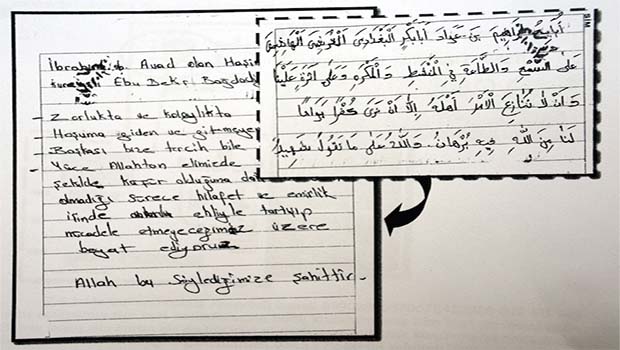 İbrahim b. Avad elan Haşi
Ebu Bekr Bağdady
- Zorlukta ve kolaylıkta
Hoşuma giden ve gitmeyen
- Başkası bize tercih bile
- Yüce Allahtan elimizde
şekilde küfür olduğuna
olmadığı sürece hilafet ve emirlik
işinde ehliyle tartışıp
mücadele etmeyeceğimiz üzere
beyat ediyoruz
Allah bu söylediğimize şahittir.
أبايع إبراهيم بن عواد أبابكر البغدادي القريشي الهاشمي
على السمع والطاعة في المنشط والمكره وعلى أثرة علينا
وأن لا ننازع الأمر أهله إلا أن نرى كفرا بواحا
لنا من الله فيه برهان. والله على ما نقول شهيد